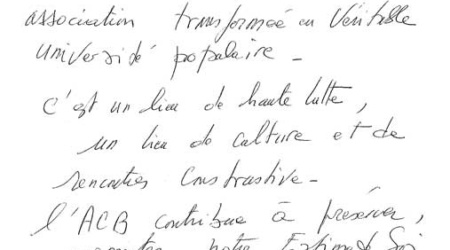 association transformée en véritable
université populaire -
C'est un lieu de haute lutte,
un lieu de culture et de
rencontres constructive -
l'ACB contribue à préserver,
notre Estime de Soi